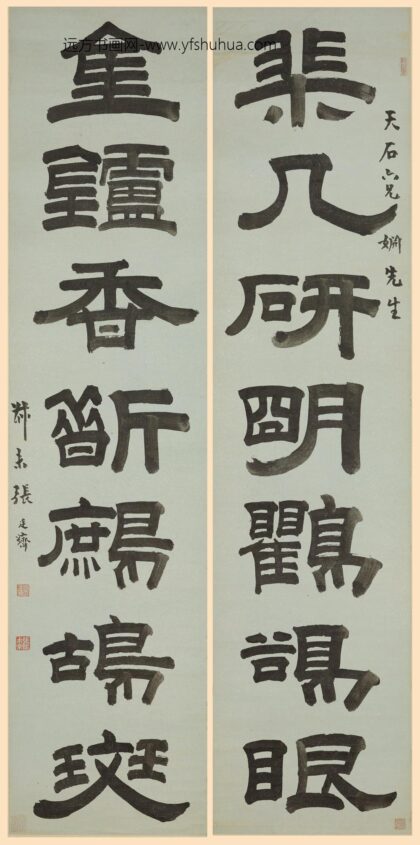 远方书画网-www.yfshuhua.com
天石六兄婣先生
棐几研明鸜鵒眼
金鑪香斮鷓鴣斑
叔未張廷濟